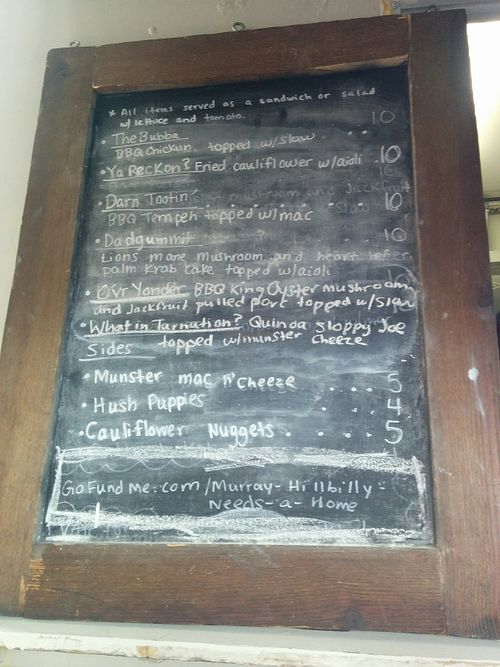 * All items served as a sandwich or salad
w/ lettuce and tomato.
• The Bubba 10
BBQ Chickun topped w/slaw
• Ya Reckon? Fried cauliflower w/aioli 10
• Darn Tootin' 10
BBQ Tempeh topped w/mac
• Dadgummit 10
Lions mane mushroom and heart
palm krab cake topped w/aioli
• Ovr Yonder BBQ King Oyster Mushroom 10
and Jackfruit pulled pork topped w/slaw
• What in Tarnation? Quinoa Sloppy Joe
topped w/munster cheeze
Sides
• Munster mac n' Cheeze ... 5
• Hush Puppies .. 4
• Cauliflower Nuggets. ... 5
GoFundMe.com/Murray-Hillbilly-
Needs-a-Home